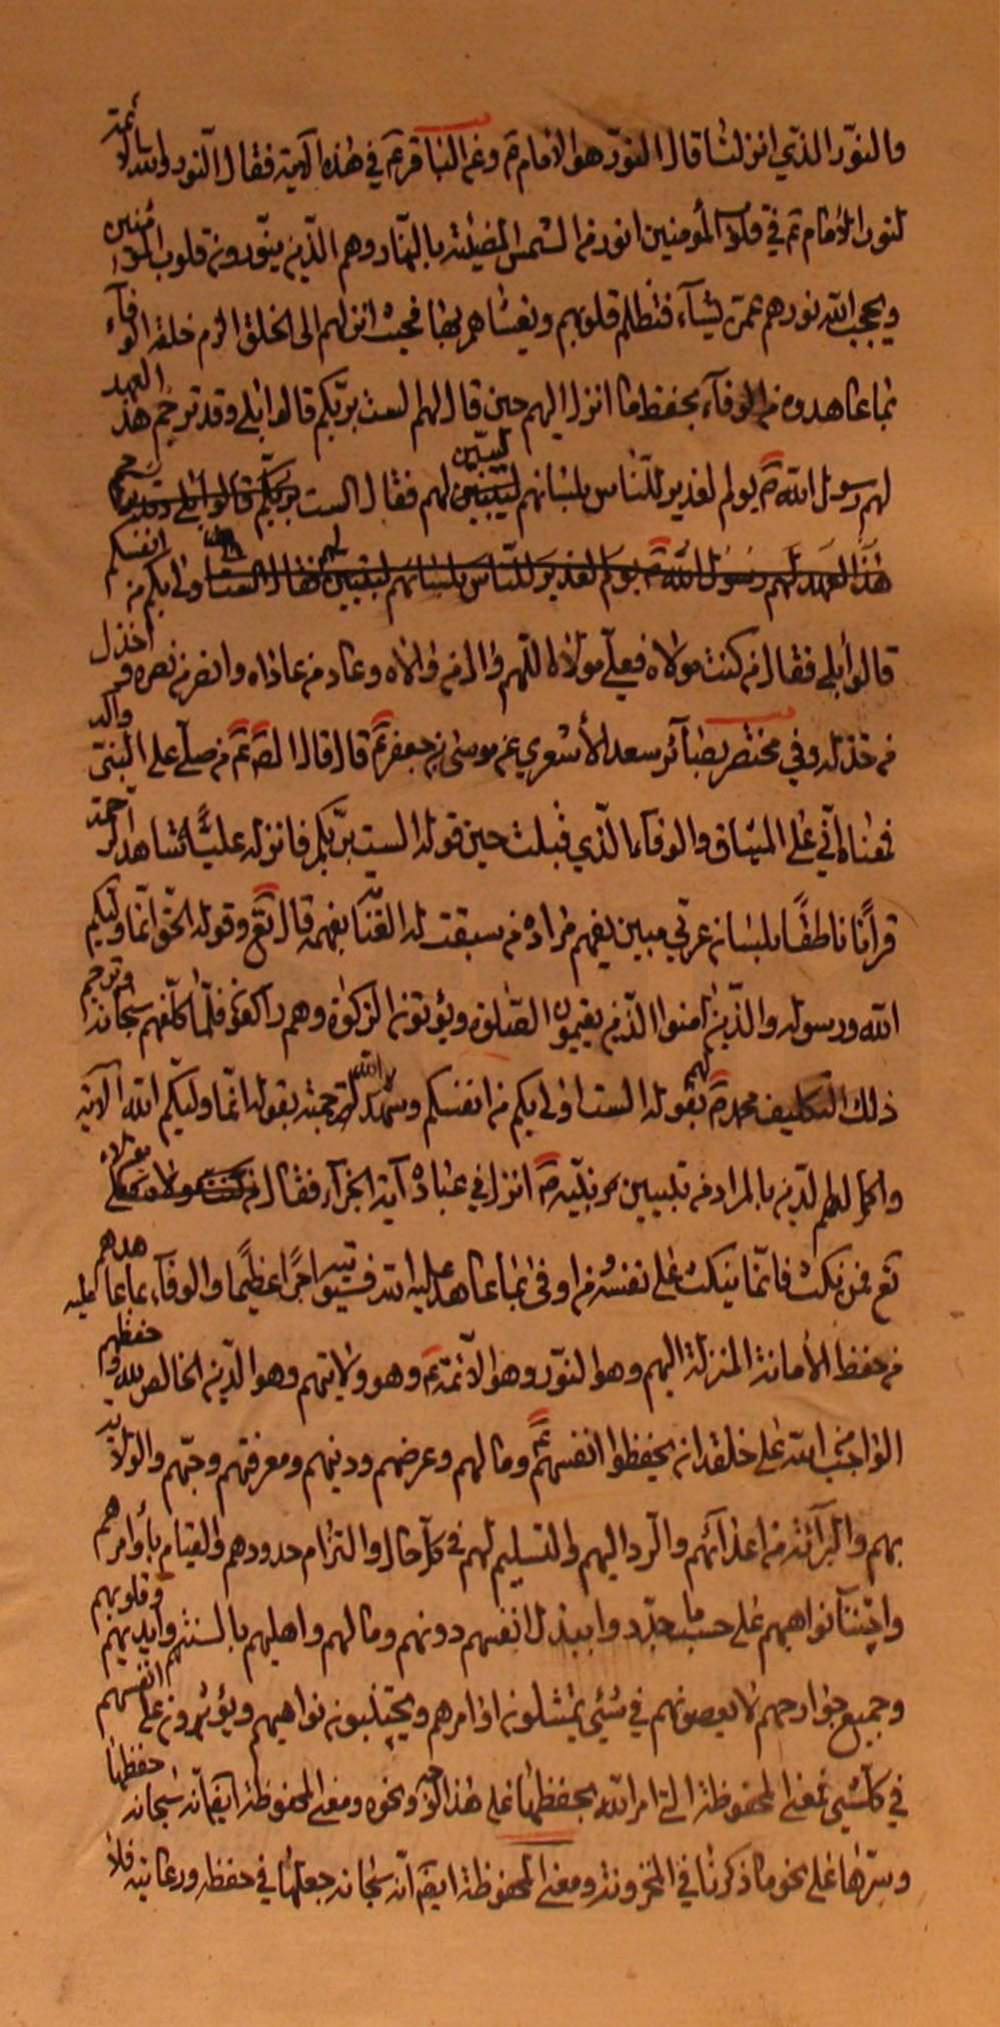 والنور الذي انزلنا قال النور هو الامام ع وعن الباقر ع في هذه الآية فقال النور والله الائمة
لنور الامام ع في قلوب المؤمنين انور من الشمس المضيئة بالنهار وهم الذين ينورون قلوب المؤمنين
ويحجب الله نورهم عمن يشآء فتظلم قلوبهم ويغشاهم بها فيجب انزلهم الى الخلق الزم خلقه الوفآء
بما عاهدوه من الوفآء بحفظ ما انزل اليهم حين قال لهم الست بربكم قالوا بلى وقد ترجم هذا العهد
لهم رسول الله ص يوم الغدير للناس بلسانهم ليبين لهم فقال الست بربكم قالوا بلى وقد ترجم
هذا العهد لهم رسول الله ص يوم الغدير للناس بلسانهم ليبين لهم فقال الست اولى بكم من انفسكم
قالوا بلى فقال من كنت مولاه فعلي مولاه اللهم وال من والاه وعاد من عاداه وانصر من نصره واخذل
من خذله وفي مختصر بصآئر سعد الأشعري عن موسى بن جعفر ع قال قال الص ع من صلى على النبي وآله
فمعناه اني على الميثاق والوفآء الذي قبلت حين قوله الست بربكم فانزله عليا شاهدا
قرآنا ناطقا بلسان عربي مبين يفهم مراده من سبقت له العناية بفهمه قال تع وقوله الحق انما وليكم
الله ورسوله والذين امنوا الذين يقيمون الصلوة ويؤتون الزكوة وهم راكعون فلما كلفهم سبحانه وترجم
ذلك التكليف محمد ص لهم بقوله الست اولى بكم من انفسكم وشهد الله له ترجمته بقوله انما وليكم الله الآية
والحمد لهم الدين بالمراد من تبيين نبيه ص انزل في عباده آية الجزآء فقال من كنت مولاه فعلي مولاه
تع فمن نكث فانما ينكث على نفسه ومن اوفى بما عاهد عليه الله فسيؤتيه اجرا عظيما والوفآء بما عاهدهم عليه
من حفظ الأمانة المنزلة اليهم وهو النور وهو الائمة ع وهو ولايتهم وهو الدين الخالص لله وحفظهم
الواجب لله على خلقه ان يحفظوا انفسهم ع ومالهم وعرضهم ودينهم ومعرفتهم وحبهم والولاية
بهم والبرآئة من اعدآئهم والرد اليهم والتسليم لهم في كل حال والتزام حدودهم والقيام بأوامرهم
واجتناب نواهيهم على حسب ما حدد وا ببذل انفسهم دونهم ومالهم واهليهم بالسنتهم وايديهم وقلوبهم
وجميع جوارحهم لا يعصونهم في شيئ يمتثلون اوامرهم ويجتنبون نواهيهم ويؤثرونهم على انفسهم
في كل شيئ فمعنى المحفوظة التي امر الله بحفظها على هذا النحو ونحوه ومعنى المحفوظة ايضا انه سبحانه حفظها
وسترها على نحو ما ذكرنا في المخزونة ومعنى المحفوظة ايضا انه سبحانه جعلها في حفظه ورعايته فلا